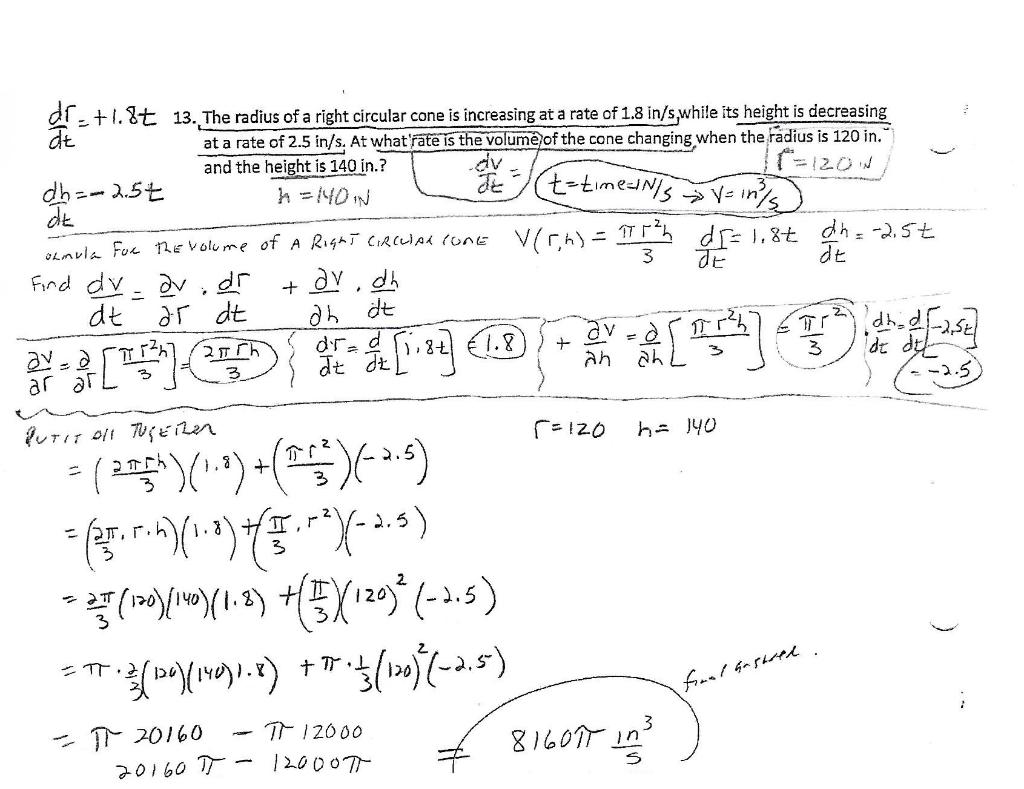 dr/dt = +1.8t 13. The radius of a right circular cone is increasing at a rate of 1.8 in/s while its height is decreasing
at a rate of 2.5 in/s. At what rate is the volume of the cone changing when the radius is 120 in.
and the height is 140 in.? dv/dt = r=120 IN
dh/dt = -2.5t h=140 IN t=time=IN/s → V=in³/s
ormula For The Volume of A Right Circular Cone V(r,h) = πr²h/3 dr/dt = 1.8t dh/dt = -2.5t
Find dv/dt = ∂v/∂r · dr/dt + ∂v/∂h · dh/dt
∂v/∂r = ∂/∂r [πr²h/3] = 2πrh/3 } dr/dt = d/dt [1.8t] = 1.8 } + ∂v/∂h = ∂/∂h [πr²h/3] = πr²/3 } · dh/dt = d/dt [-2.5t] = -2.5
Put it all Together r=120 h=140
= (2πrh/3)(1.8) + (πr²/3)(-2.5)
= (2π/3 · r·h)(1.8) + (π/3 · r²)(-2.5)
= 2π/3 (120)(140)(1.8) + (π/3)(120)² (-2.5)
= π · 2/3 (120)(140)1.8) + π · 1/3 (120)² (-2.5)
final answer.
= π 20160 - π 12000
20160 π - 12000π = 8160π in³/s